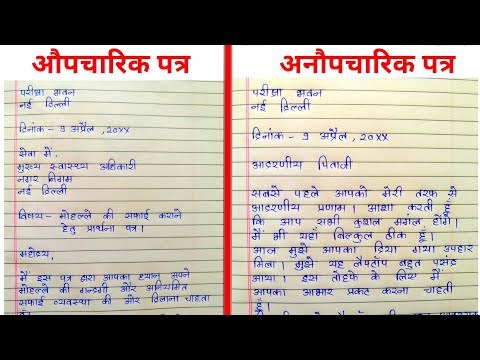 औपचारिक पत्र
परीक्षा भवन
नई दिल्ली
दिनांक - 9 अप्रैल, 20XX
सेवा में,
मुख्य स्वास्थ्य अधिकारी
नगर निगम
नई दिल्ली
विषय - मोहल्ले की सफाई कराने
हेतु प्रार्थना पत्र।
महोदय,
मैं इस पत्र द्वारा आपका ध्यान अपने
मोहल्ले की गन्दगी और अनियमित
सफाई व्यवस्था की ओर दिलाना चाहता
हूँ।
अनौपचारिक पत्र
परीक्षा भवन
नई दिल्ली
दिनांक - 9 अप्रैल, 20XX
आदरणीय पिताजी
सबसे पहले आपको मेरी तरफ से
आदरणीय प्रणाम। आशा करती हूँ
कि आप सभी कुशल मंगल होंगे।
मैं भी यहाँ बिल्कुल ठीक हूँ।
आज मुझे आपका दिया गया उपहार
मिला। मुझे यह लैपटॉप बहुत पसंद
आया। इस तोहफे के लिए मैं
आपका आभार प्रकट करना चाहती
हूँ।